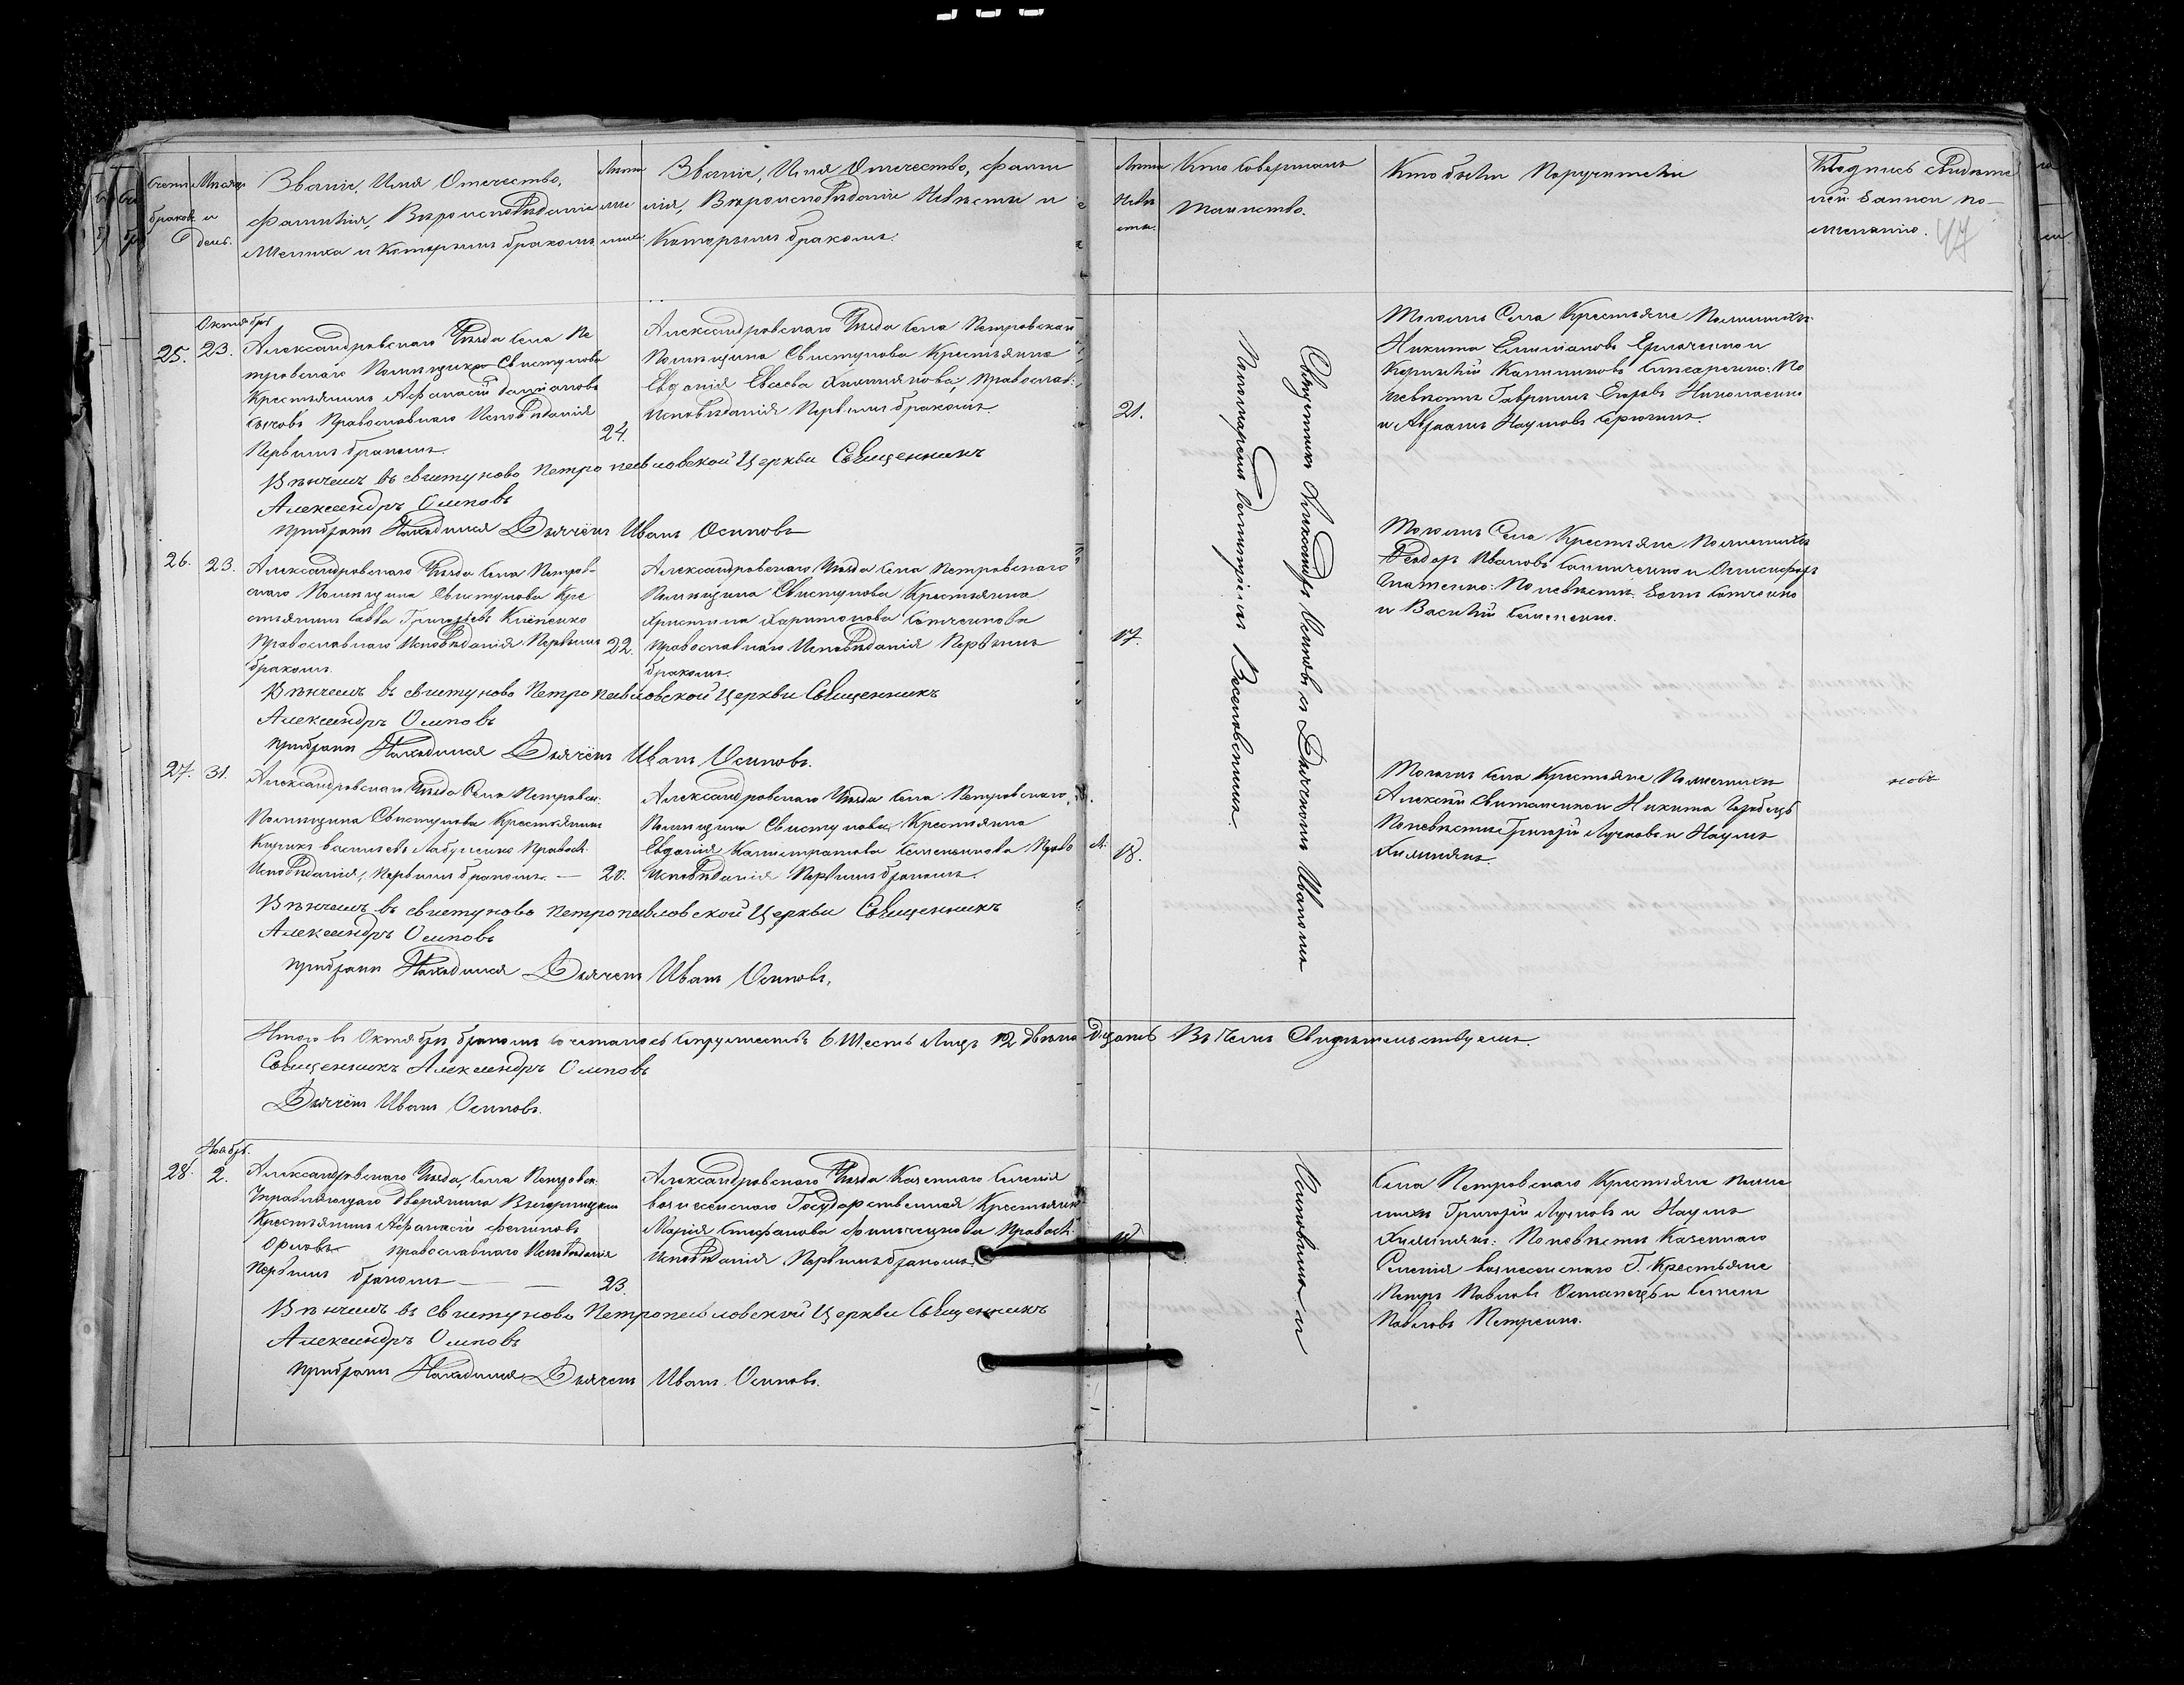 Счетъ браковъ
Мѣсяцъ и день.
Званіе, Имя Отечество,
Фамилія, Вѣроисповѣданіе
Жениха и которымъ бракомъ
Лѣта же ниха
Званіе, Имя Отечество, Фами
лія, Вѣроисповѣданіе Невѣсты и
Которымъ бракомъ.
Лѣта Невѣ сты.
Кто Совершалъ
Таинство.
Кто были Поручители
Подпись Свидѣте
лей записи по
желанію. 47
Октябрь
25. 23.
Александровскаго Уѣзда Села Пе
тровскаго Помѣщика Свистунова
Крестьянинъ Афанасій
Сычовъ Православнаго Исповѣданія
Первымъ бракомъ.
24.
Александровскаго Уѣзда Села Петровскаго
Помѣщика Свистунова Крестьянка
Евдокія Евсеева Православ:
Исповѣданія Первымъ бракомъ.
21.
Священникъ Александръ Осиповъ съ Дьячкомъ Иваномъ
Пономаремъ Димитріемъ Веселовскимъ.
Тогожъ Села Крестьяне Помѣщика
Никита Ермаченко и
Калиниковъ По
невѣстѣ Гавріилъ Егоровъ Николаенко
и Авраамъ Наумовъ
Вѣнчалъ въ Свистуново Петропавловской Церкви Священникъ
Александръ Осиповъ
При бракѣ Находился Дьячёкъ Иванъ Осиповъ
26. 23.
Александровскаго Уѣзда Села Петров-
скаго Помѣщика Свистунова Кре
стьянинъ Савва Григорьевъ
Православнаго Исповѣданія Первымъ
бракомъ.
22.
Александровскаго Уѣзда Села Петровскаго
Помѣщика Свистунова Крестьянка
Христина Харитонова
Православнаго Исповѣданія Первымъ
бракомъ.
17.
Тогожъ Села Крестьяне Помѣщика
Феодоръ Ивановъ и
Игнатенко: По невѣстѣ
и Василій
Вѣнчалъ въ Свистуново Петропавловской Церкви Священникъ
Александръ Осиповъ
При бракѣ Находился Дьячёкъ Иванъ Осиповъ.
27. 31.
Александровскаго Уѣзда Села Петровск:
Помѣщика Свистунова Крестьянинъ
Кирикъ Васильевъ Правосл.
Исповѣданія, Первымъ бракомъ. — 20.
Александровскаго Уѣзда Села Петровскаго,
Помѣщика Свистунова Крестьянка
Евдокія Калистратова Право
Исповѣданія Первымъ бракомъ.
18.
Тогожъ Села Крестьяне Помѣщика
Алексѣй и Никита
По невѣстѣ Григорій Лучковъ и Наумъ
Вѣнчалъ въ Свистуново Петропавловской Церкви Священникъ
Александръ Осиповъ
При бракѣ Находился Дьячёкъ Иванъ Осиповъ,
Итого въ Октябрѣ бракомъ сочеталось Супружествъ 6 Шесть Лицъ 12 двѣнадцать Въ чемъ Свидѣтельствуемъ.
Священникъ Александръ Осиповъ
Дьячёкъ Иванъ Осиповъ.
Ноябрь.
28. 2.
Александровскаго Уѣзда, Села Петровск:
Управляющаго Дворянина
Крестьянинъ Афанасій
Орловъ Православнаго Исповѣданія
Первымъ бракомъ — — 23.
Александровскаго Уѣзда Казеннаго Селенія
Вознесенскаго Государственная Крестьянка
Марія Стефанова Правосл.
Исповѣданія Первымъ бракомъ.
Осиповымъ и
Села Петровскаго Крестьяне Помѣ
щика Григорій Лучковъ и Наумъ
По невѣстѣ Казеннаго
Селенія Вознесенскаго Г. Крестьяне
Петръ Павловъ и
Павловъ Петренко.
Вѣнчалъ въ Свистуново Петропавловской Церкви Священникъ
Александръ Осиповъ
При бракѣ Находился Дьячёкъ Иванъ Осиповъ.